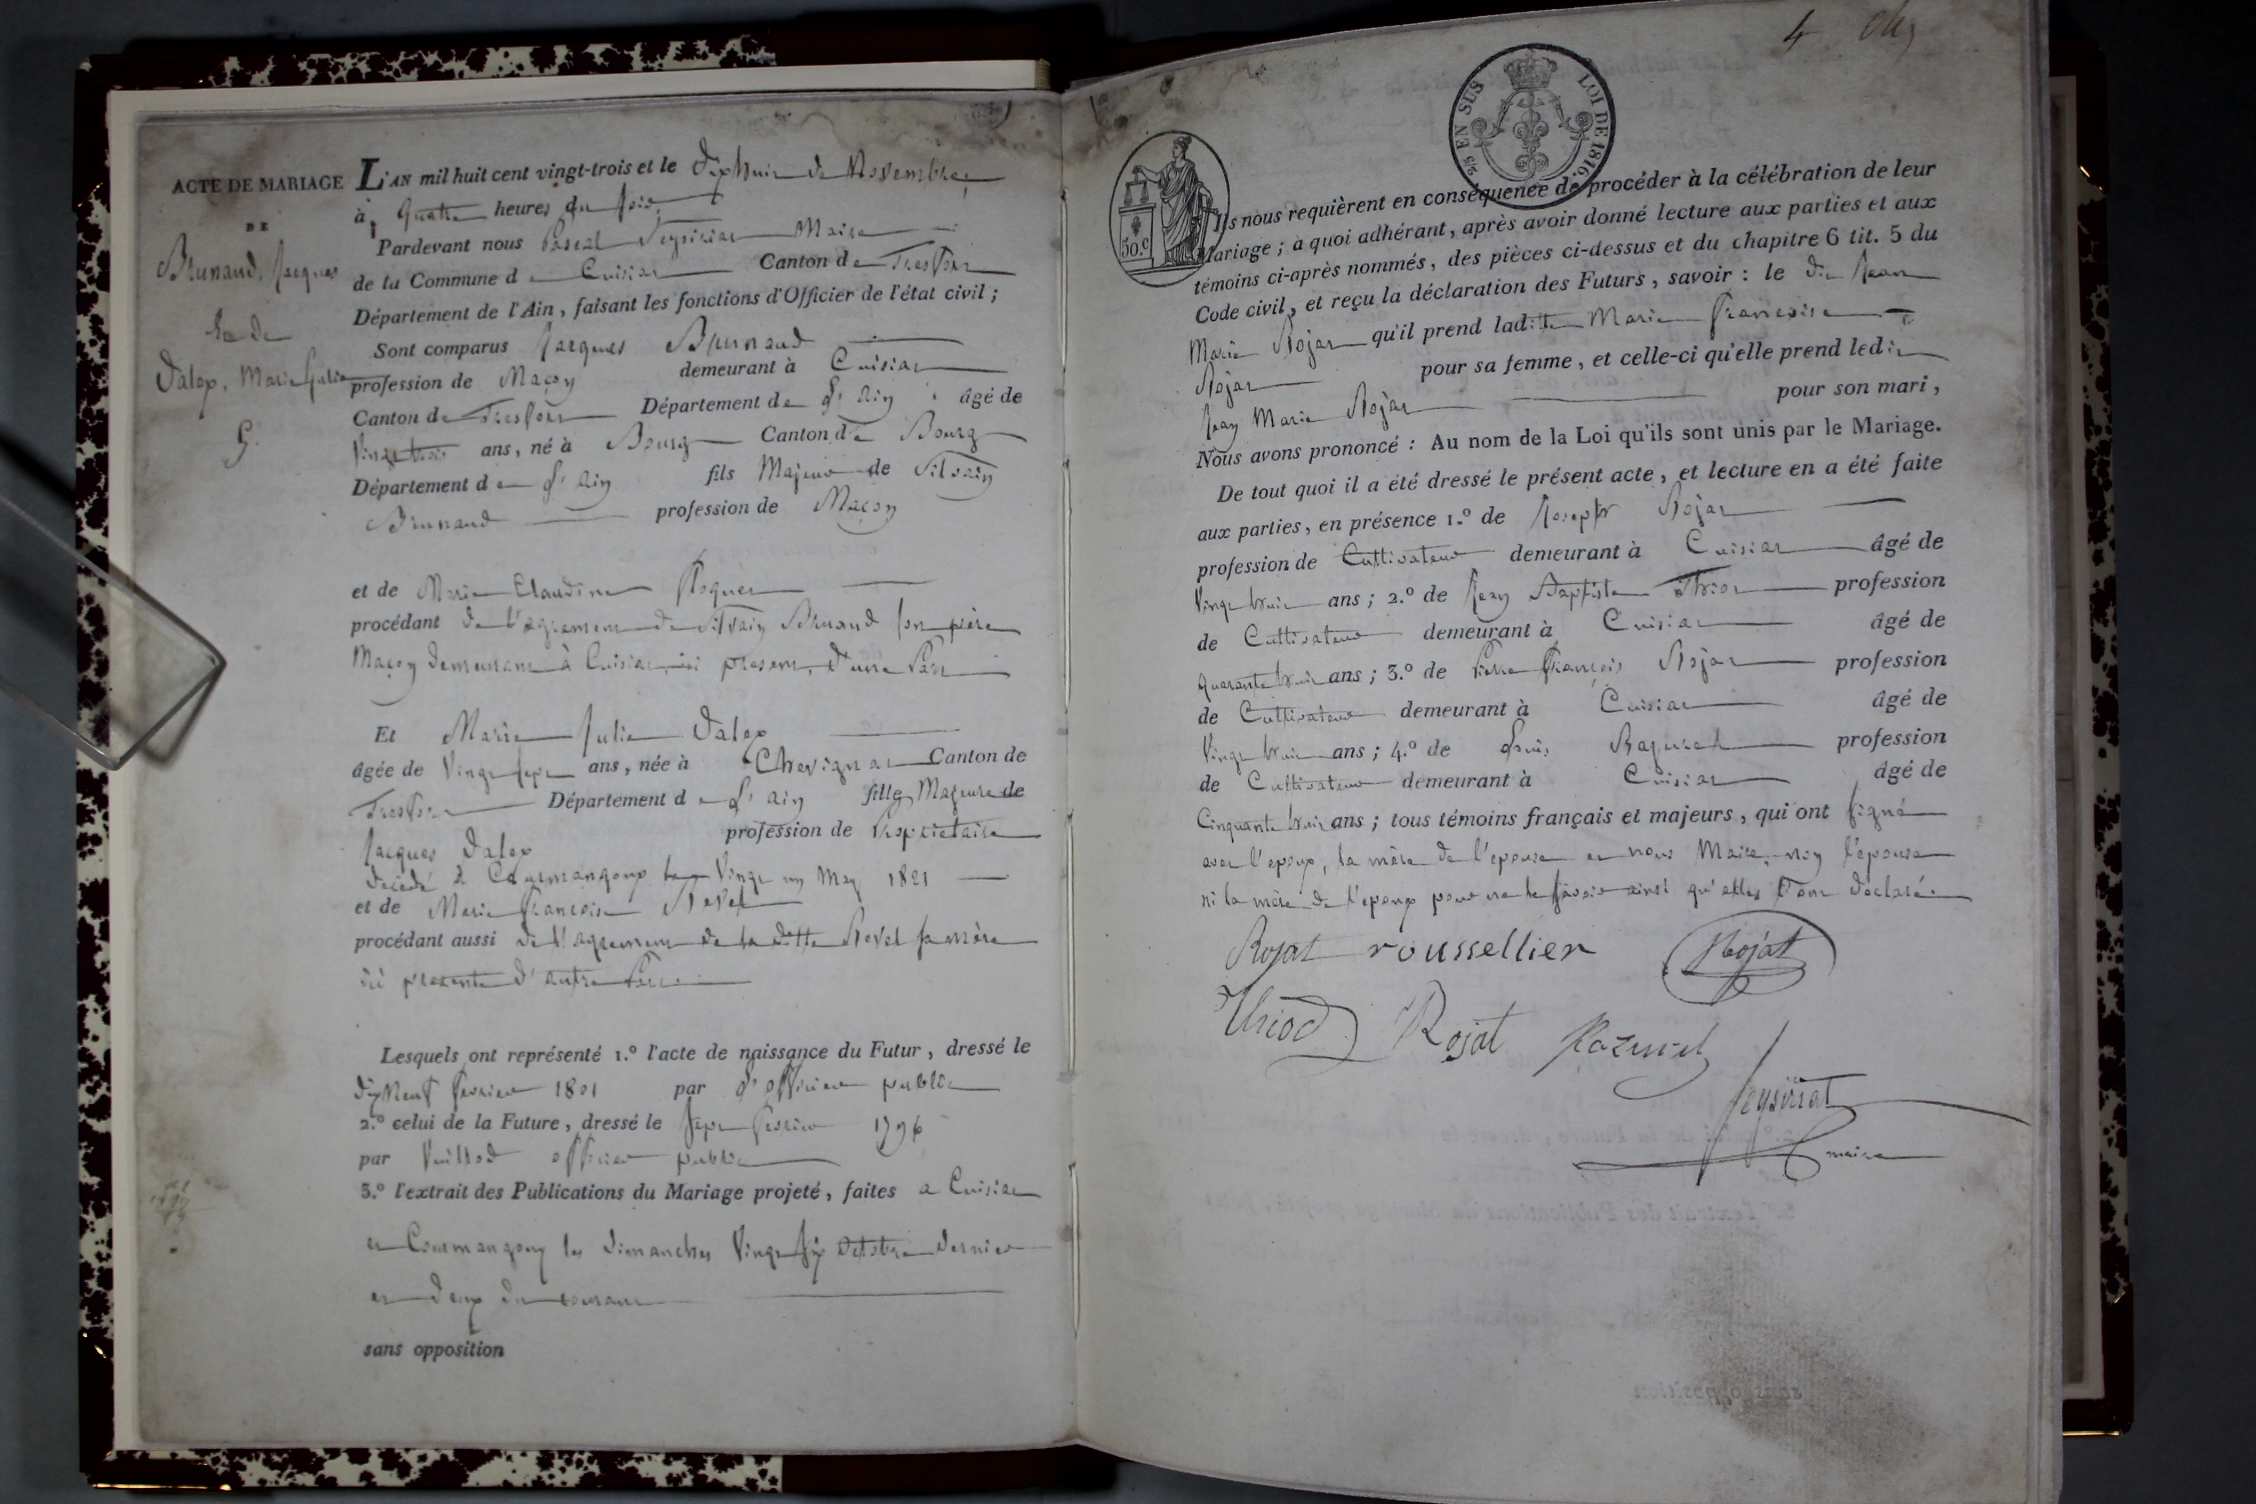 ACTE DE MARIAGE
DE
Brunaud, Jacques
et de
Dalex, Marie Julie
L'AN mil huit cent vingt-trois et le dix huit de Novembre,
à quatre heures du soir,
Pardevant nous Pascal Teyssiat Maire
de la Commune de Cuisiat Canton de Treffort
Département de l'Ain, faisant les fonctions d'Officier de l'état civil ;
Sont comparus Jacques Brunaud
profession de Maçon demeurant à Cuisiat
Canton de Treffort Département de L'ain âgé de
Vingt trois ans, né à Bourg Canton de Bourg
Département de L'ain fils Majeur de Silvain
Brunaud profession de Maçon
et de Marie Claudine
procédant de l'agrement de Silvain Brunaud son père
Maçon demeurant à Cuisiat, ici present, d'une Part
Et Marie Julie Dalex
âgée de Vingt sept ans, née à Chevignat Canton de
Treffort Département de L'ain fille Majeure de
Jacques Dalex profession de Propriétaire
décédé à Courmangoux le Vingt un May 1821
et de Marie Françoise Revel
procédant aussi de l'agrement de la ditte Revel sa mère
ici presente d'autre Part
Lesquels ont représenté 1.º l'acte de naissance du Futur, dressé le
dix Neuf fevrier 1801 par L'officier public
2.º celui de la Future, dressé le sept fevrier 1796
par Vuillod officier public
3.º l'extrait des Publications du Mariage projeté, faites a Cuisiat
et Courmangoux les Dimanches Vingt six Octobre dernier
et deux du courant
sans opposition
4
2/5 EN SUS LOI DE 1816.
50.c
Ils nous requièrent en conséquence de procéder à la célébration de leur
Mariage ; à quoi adhérant, après avoir donné lecture aux parties et aux
témoins ci-après nommés, des pièces ci-dessus et du chapitre 6 tit. 5 du
Code civil, et reçu la déclaration des Futurs, savoir : le dit Jean
Marie Rojat qu'il prend laditte Marie Françoise
Rojat pour sa femme, et celle-ci qu'elle prend ledit
Jean Marie Rojat pour son mari,
Nous avons prononcé : Au nom de la Loi qu'ils sont unis par le Mariage.
De tout quoi il a été dressé le présent acte, et lecture en a été faite
aux parties, en présence 1.º de Joseph Rojat
profession de Cultivateur demeurant à Cuisiat âgé de
Vingt huit ans ; 2.º de Jean Baptiste Thiod profession
de Cultivateur demeurant à Cuisiat âgé de
quarante huit ans ; 3.º de Pierre François Rojat profession
de Cultivateur demeurant à Cuisiat âgé de
Vingt huit ans ; 4.º de Louis Razurel profession
de Cultivateur demeurant à Cuisiat âgé de
Cinquante huit ans ; tous témoins français et majeurs, qui ont signé
avec l'epoux, la mère de l'epouse et nous Maire, non l'epouse
ni la mère de l'epoux pour ne le savoir ainsi qu'elles l'ont déclaré
Rojat roussellier Rojat
Thiod Rojat Razurel
Teyssiat
maire